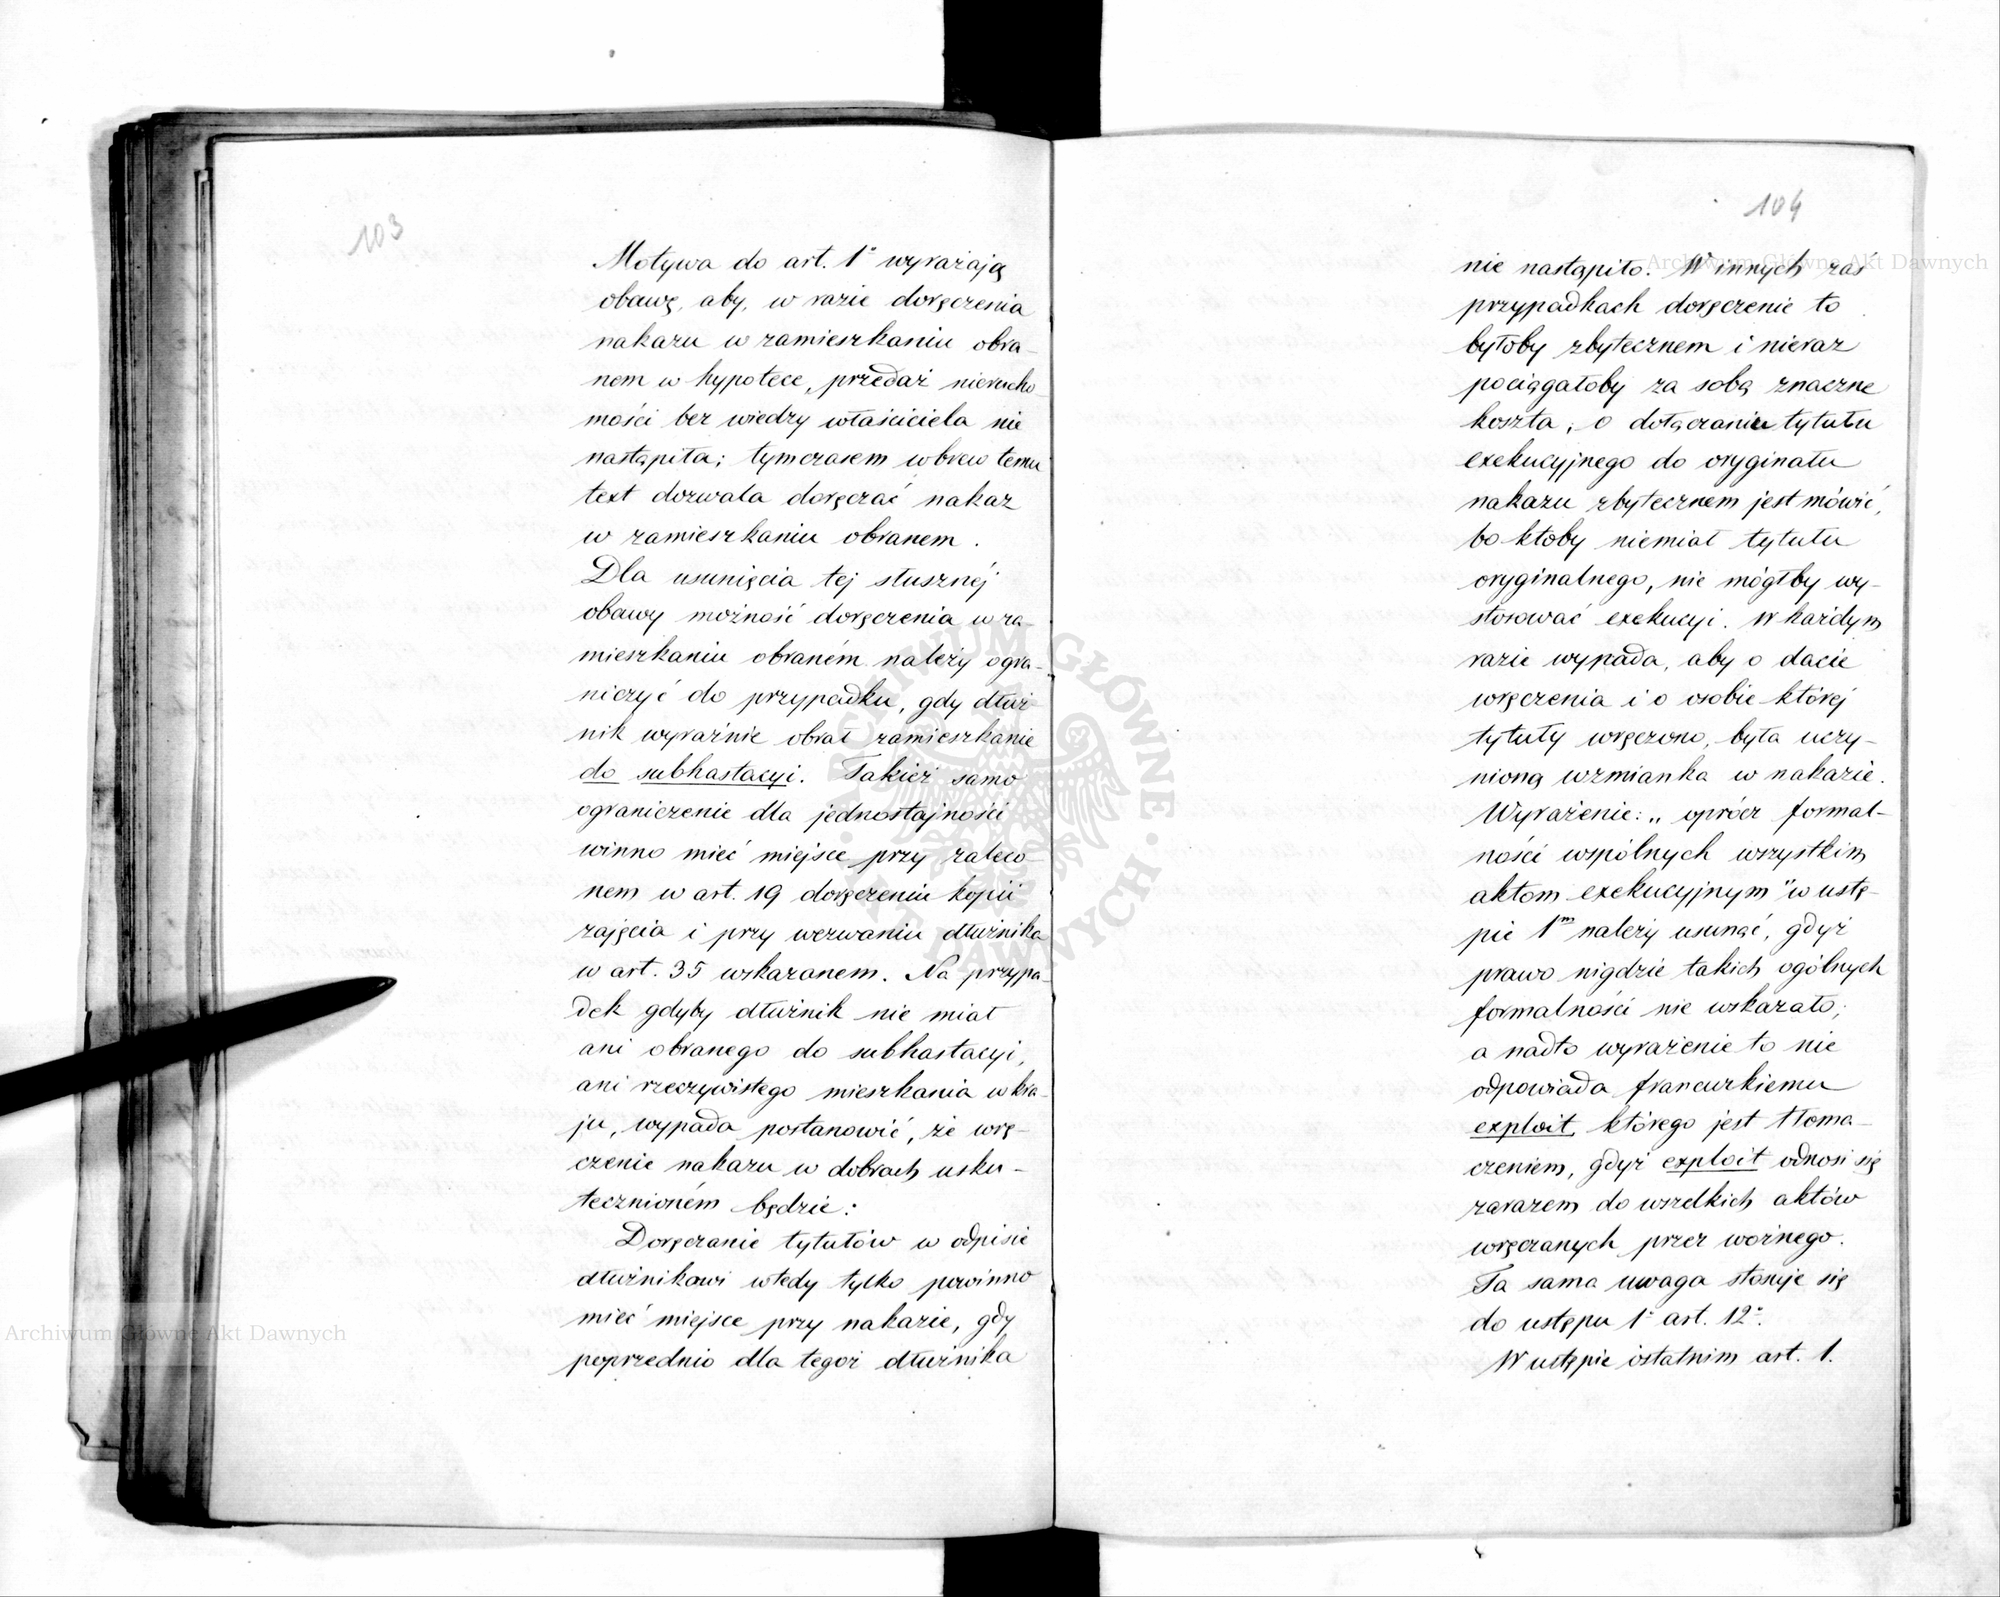 103
Motywa do art. 1º wyrażają
obawę, aby, w razie doręczenia
nakazu w zamieszkaniu obra-
nem w hypotece, przedaż nierucho-
mości bez wiedzy właściciela nie
nastąpiła; tymczasem wbrew temu
text dozwala doręczać nakaz
w zamieszkaniu obranem.
Dla usunięcia tej słusznéj
obawy możność doręczenia w za-
mieszkaniu obraném należy ogra-
niczyć do przypadku, gdy dłuż-
nik wyraźnie obrał zamieszkanie
do subhastacyi. Takież samo
ograniczenie dla jednostajności
winno mieć miejsce przy zaleco-
nem w art. 19 doręczeniu kopii
zajęcia i przy wezwaniu dłużnika
w art. 35 wskazanem. Na przypa-
dek gdyby dłużnik nie miał
ani obranego do subhastacyi,
ani rzeczywistego mieszkania w kra-
ju, wypada postanowić, że wrę-
czenie nakazu w dobrach usku-
tecznioném będzie:
Doręczanie tytułów w odpisie
dłużnikowi wtedy tylko powinno
mieć miejsce przy nakazie, gdy
poprzednio dla tegoż dłużnika
104
nie nastąpiło. W innych zaś
przypadkach doręczenie to
byłoby zbytecznem i nieraz
pociągałoby za sobą znaczne
koszta; o dołączaniu tytułu
exekucyjnego do oryginału
nakazu zbytecznem jest mówić,
bo ktoby niemiał tytułu
oryginalnego, nie mógłby wy-
stosować exekucyi. W każdym
razie wypada, aby o dacie
wręczenia i o osobie której
tytuły wręczono, była uczy-
nioną wzmianka w nakazie.
Wyrażenie: „oprócz formal-
ności wspólnych wszystkim
aktom exekucyjnym" w ustę-
pie 1m należy usunąć, gdyż
prawo nigdzie takich ogólnych
formalności nie wskazało;
a nadto wyrażenie to nie
odpowiada francuzkiemu
exploit, którego jest tłoma-
czeniem, gdyż exploit odnosi się
zarazem do wszelkich aktów
wręczanych przez woźnego.
Ta sama uwaga stosuje się
do ustępu 1º art. 12º.
W ustępie ostatnim art. 1.
Archiwum Główne Akt Dawnych
Archiwum Główne Akt Dawnych
ARCHIWUM GŁÓWNE AKT DAWNYCH